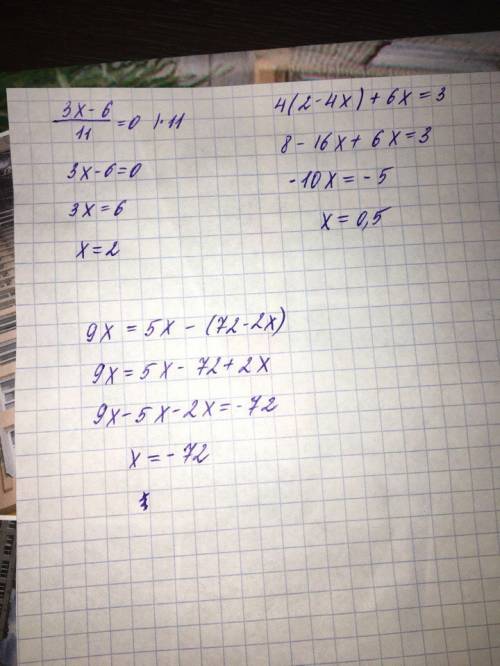 3x-6/11 =0 |·11
3x-6=0
3x=6
x=2
4(2-4x)+6x=3
8-16x+6x=3
-10x=-5
x=0,5
9x=5x-(72-2x)
9x=5x-72+2x
9x-5x-2x=-72
x=-72